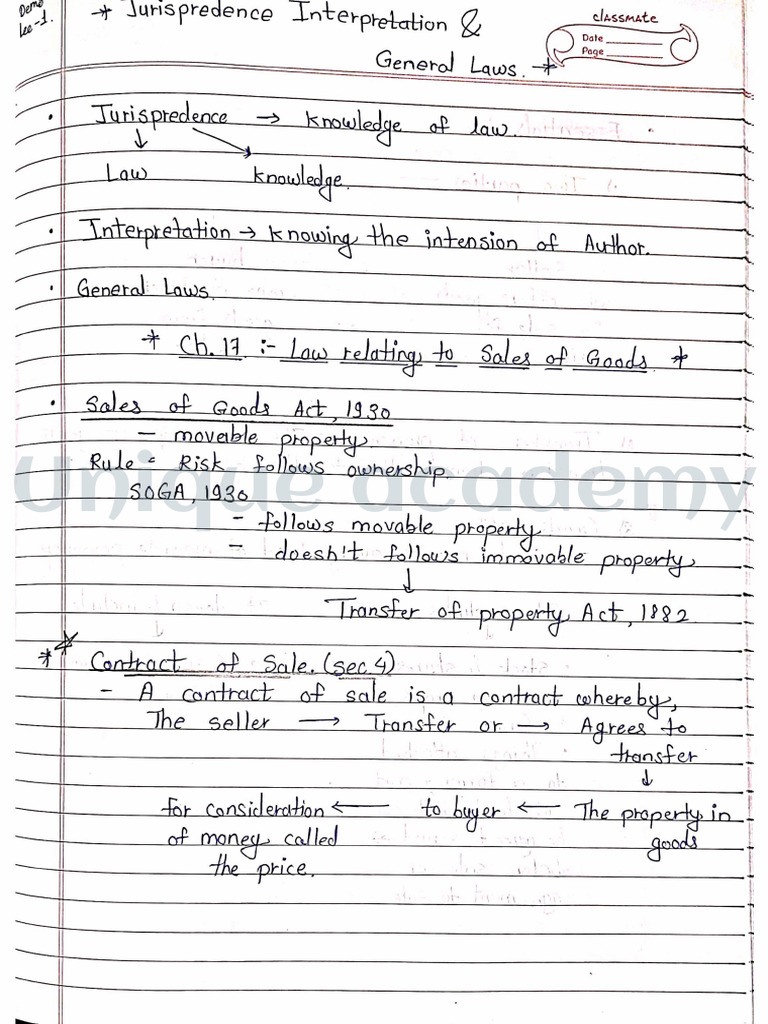 Demo
Lec-1.
* Jurispredence Interpretation &
General Laws. *
classmate
Date
Page
• Jurispredence → knowledge of law.
↓ ↘
Law knowledge.
• Interpretation → knowing the intension of Author.
• General Laws.
* Ch. 17 :- Law relating to Sales of Goods *
• Sales of Goods Act, 1930
- moveable property.
Rule = Risk follows ownership.
SOGA, 1930
- follows movable property
- doesh't follows immovable property
↓
Transfer of property Act, 1882
* Contract of Sale. (sec.4)
- A contract of sale is a contract whereby,
The seller → Transfer or → Agrees to
transfer
↓
for consideration ← to buyer ← The property in
of money called goods
the price.
Unique academy